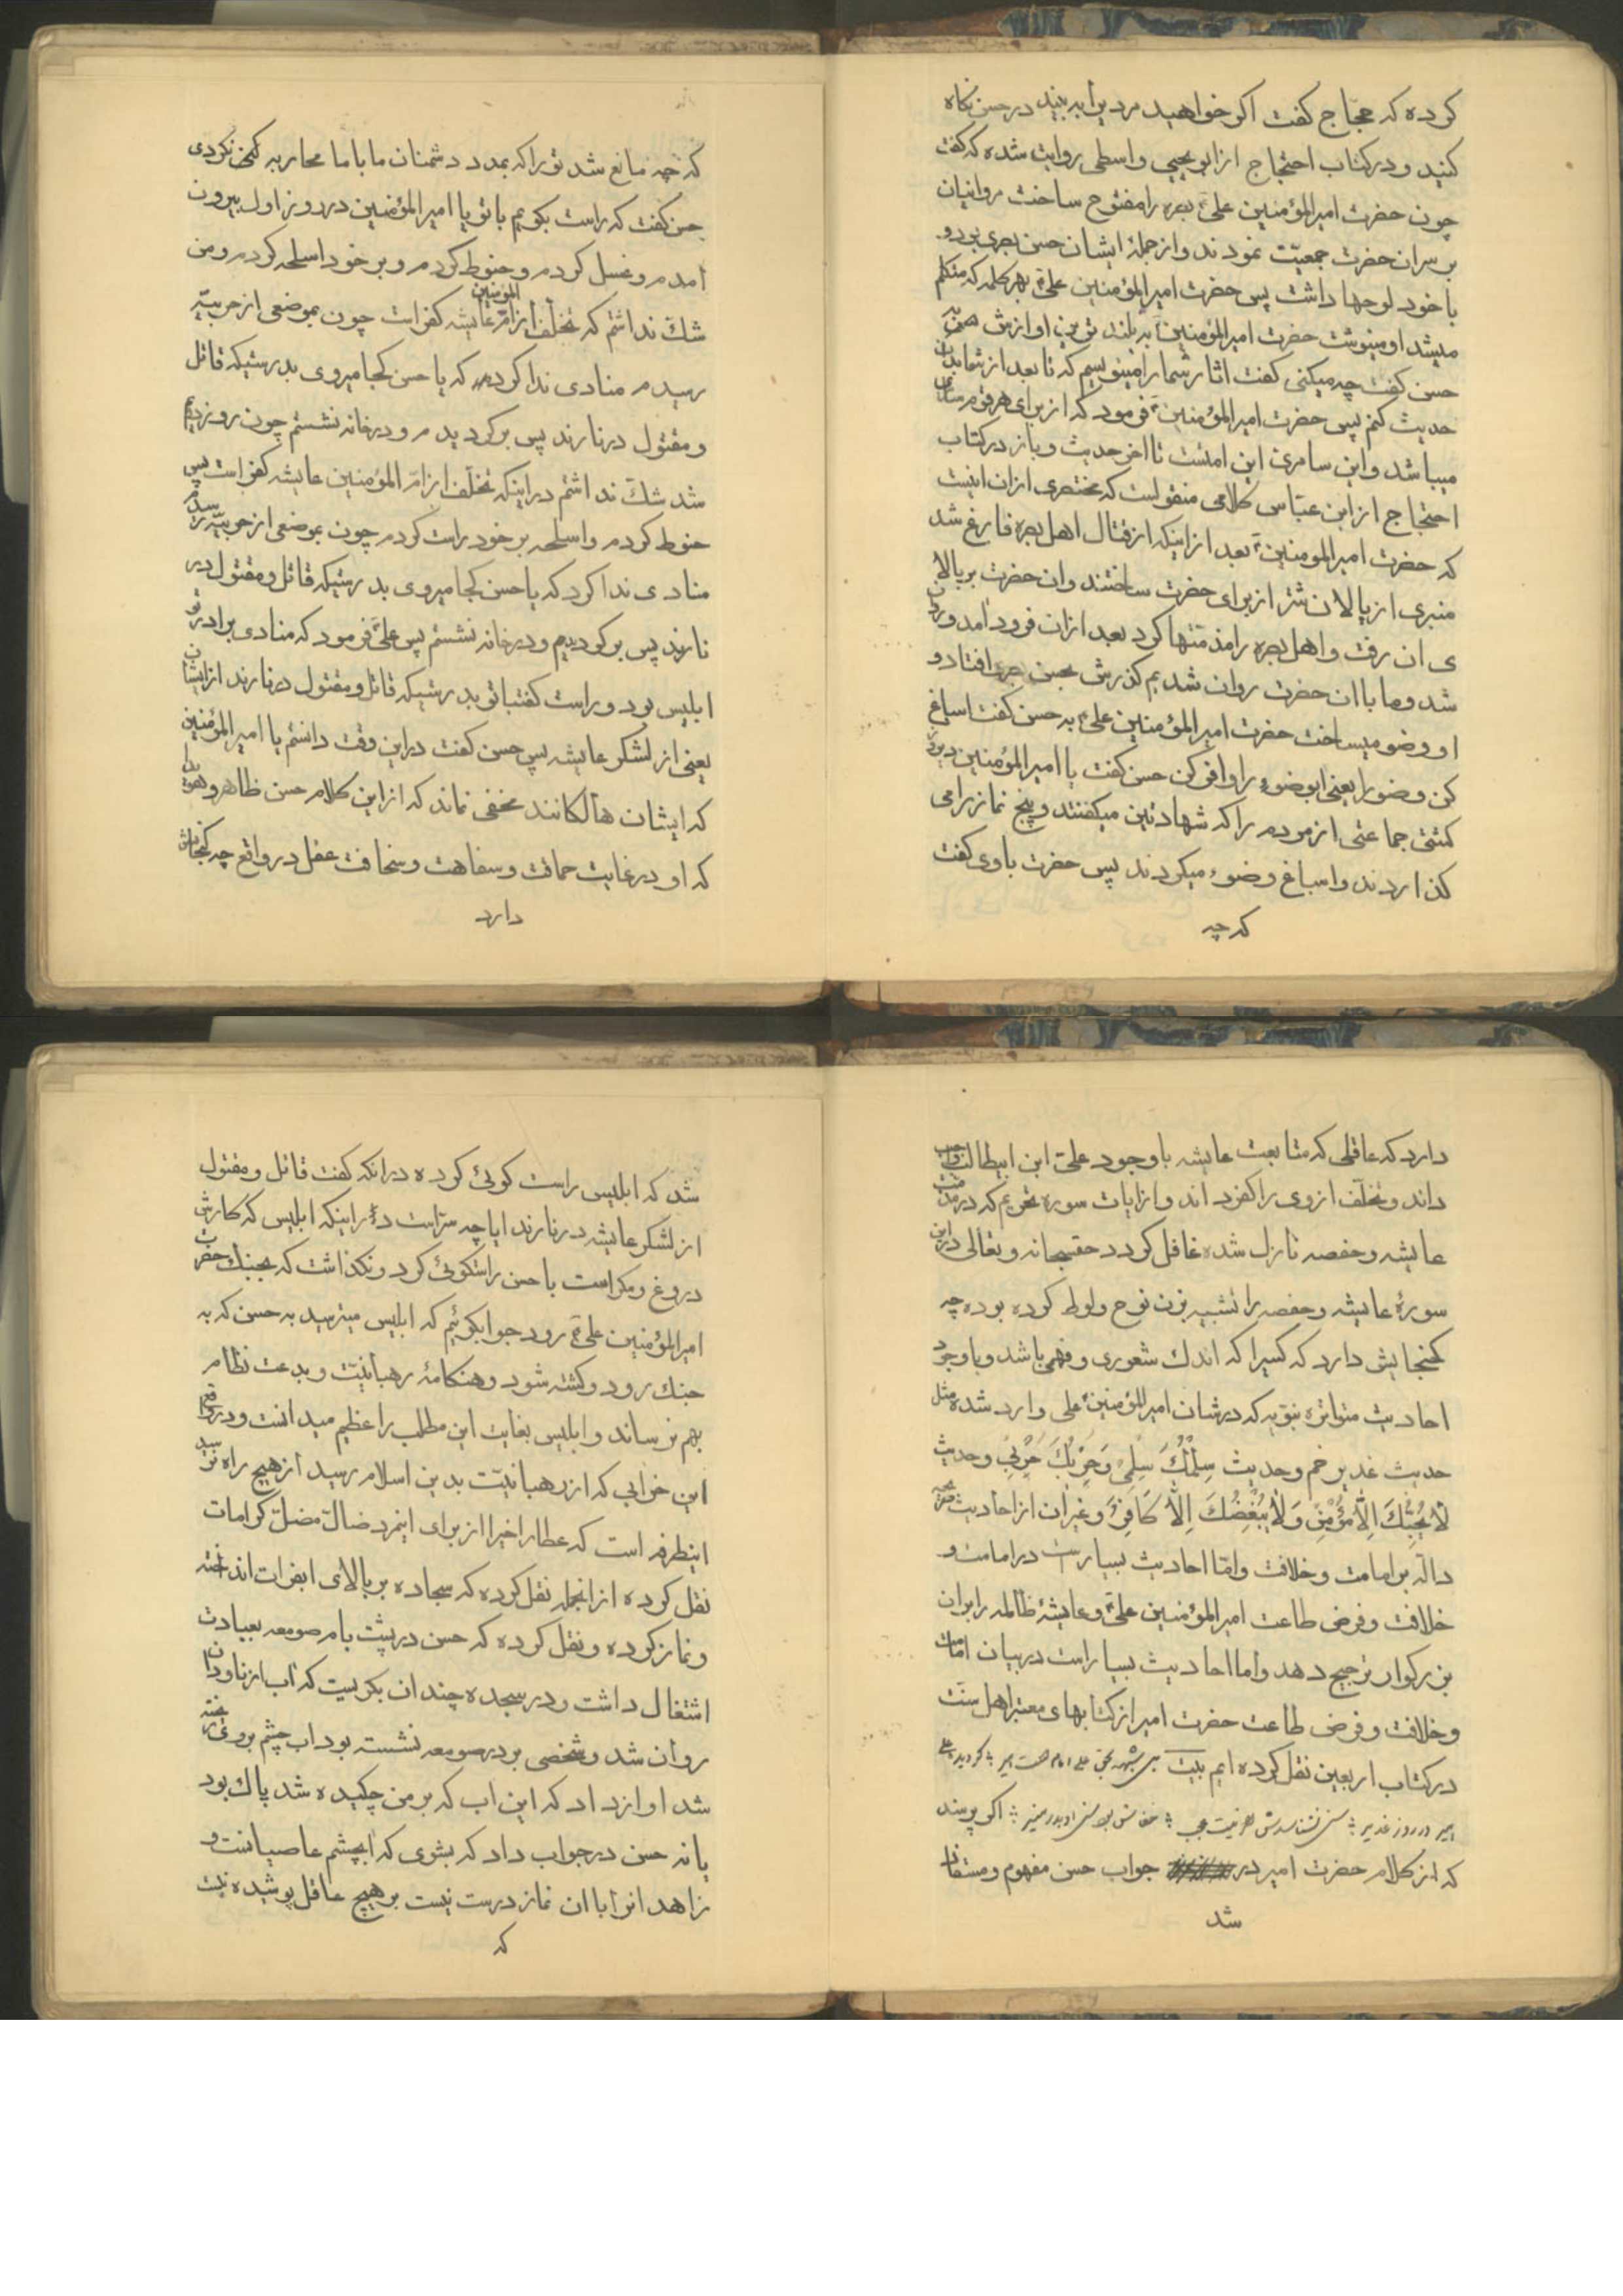 کرده که حجاج کفت اکر خواهید مردیرا به بینید در حسن نکاه
کنید و در کتاب احتجاج از ابو یحیی واسطی روایت شده که کفت
چون حضرت امیر المؤمنین علی بصره را مفتوح ساخت مروانیان
بر سر ان حضرت جمعیّت نمودند و از جملهٔ ایشان حسن بصری بود و
با خود لوحها داشت پس حضرت امیر المؤمنین علی بهر کلمه که متکلم
میشد او مینوشت حضرت امیر المؤمنین به بلند ترین اوازش
حسن کفت چه میکنی کفت اثار شما را مینویسم که تا بعد از شما بدان
حدیث کنم پس حضرت امیر المؤمنین فرمود که از برای هر قوم سامری
میباشد و این سامری این امتست تا اخر حدیث و باز در کتاب
احتجاج از ابن عبّاس کلامی منقولست که مختصری از ان اینست
که حضرت امیر المومنین بعد از اینکه از قتال اهل بصره فارغ شد
منبری از پالان شتر از برای حضرت ساختند و ان حضرت بر بالا
ی ان رفت و اهل بصره را مذمّتها کرد بعد از ان فرود امد و روان
شد و ما با ان حضرت روان شدیم کذرش بحسن افتاد و
او وضو میساخت حضرت امیر المؤمنین علی به حسن کفت اسباغ
کن وضو را یعنی ابوضوء را وافی کن حسن کفت یا امیر المؤمنین دیروز
کشتی جماعتی از مردم را که شهادتین میکفتند و پنج نماز را می
کذاردند و اسباغ وضوء میکردند پس حضرت با وی کفت
که چه
که چه مانع شد تو را که بمدد دشمنان ما با ما محاربه کنی نکردی
حسن کفت که راست بکویم با تو یا امیر المؤمنین در روز اول بیرون
امدم و غسل کردم و حنوط کردم و بر خود اسلحه کردم و من
شکّ نداشتم که تخلّف از امّ المؤمنین عایشه کفر است چون بموضعی از خریبیّه
رسیدم منادی ندا کرد که یا حسن کجا میروی بدرستیکه قاتل
و مقتول در نارند پس برکردیدم و در خانه نشستم چون روز دیم
شد شکّ نداشتم در اینکه تخلّف از امّ المؤمنین عایشه کفر است پس
حنوط کردم و اسلحه بر خود راست کردم چون بموضعی از خریبیّه رسیدم
منادی ندا کرد که یا حسن کجا میروی بدرستیکه قاتل و مقتول در
نارند پس برکردیدیم و در خانه نشستم پس علی فرمود که منادی برادر تو
ابلیس بود و راست کفت با تو بدرستیکه قاتل و مقتول در نارند از ایشان
یعنی از لشکر عایشه پس حسن کفت در این وقت دانستم یا امیر المؤمنین
که ایشان هالکانند مخفی نماند که از این کلام حسن ظاهر و هویدا
که او در غایت حماقت و سفاهت و سخافت عقل در واقع چه کنجایش
دارد
دارد که عاقلی که متابعت عایشه با وجود علی ابن ابیطالب واجب
داند و تخلّف از وی را کفر داند و از ایات سوره تحریم که در مذمّت
عایشه و حفصه نازل شده غافل کردد حقسبحانه و تعالی در این
سورهٔ عایشه و حفصه را تشبیه بزن نوح و لوط کرده بوده چه
کنجایش دارد که کسیرا که اندک شعوری و فهمی باشد و باوجود
احادیث متواتره نبویه که در شان امیر المؤمنین علی وارد شده مثل
حدیث غدیر خم و حدیث سِلْمُكَ سِلْمِی وَحَرْبُكَ حَرْبِی وحدیث
لاٰ یُحِبُّكَ اِلاّٰ مُؤْمِنٌ وَلاٰ یُبْغِضُكَ اِلاّٰ كَافِرٌ و غیر ان از احادیث صریحه
دالّه بر امامت و خلافت و امّا احادیث بسیار است در امامت و
خلافت و فرض طاعت امیر المؤمنین علی و عایشهٔ ظالمه را بر ان
بزرکوار ترجیح دهد و اما احادیث بسیار است در بیان امامت
وخلافت و فرض طاعت حضرت امیر از کتابهای معتبر اهل سنّت
در کتاب اربعین نقل کرده ایم بیت بی شبهه بحق علی امام است امیر کردیده علی
امیر در روز غدیر اکر پرسند
که از کلام حضرت امیر در جواب حسن مفهوم و مستفاد
شد
شد که ابلیس راست کوئی کرده در انکه کفت قاتل و مقتول
از لشکر عایشه در نارند ایا چه سرّاست در اینکه ابلیس که کارش
دروغ و مکر است با حسن راستکوئی کرد و نکذاشت که بجنك حضرت
امیر المؤمنین علی رود جواب کوئیم که ابلیس میترسید به حسن که به
جنك رود و کشته شود و هنکامهٔ رهبانیّت و بدعت نظام
بهم نرساند و ابلیس بغایت این مطلب را عظیم میدانست و در واقع
این خرابی که از رهبانیّت بدین اسلام رسید از هیچ راه نرسید
اینطرفه است که عطار اخبرا از برای اینمرد ضالّ مضلّ کرامات
نقل کرده از انجمله نقل کرده که سجاده بر بالای اب فرات انداخته
و نماز کرده و نقل کرده که حسن در پشت بام صومعه بعبادت
اشتغال داشت و در سجده چندان بکریست که اب از ناودان
روان شد و شخصی بر در صومعه نشسته بود اب چشم بر وی ریخته
شد اواز داد که این اب که بر من چکیده شد پاك بود
یا نه حسن در جواب داد که بشوی که ابچشم عاصیانست و
زاهدانرا با ان نماز درست نیست بر هیچ عاقل پوشیده نیست
که